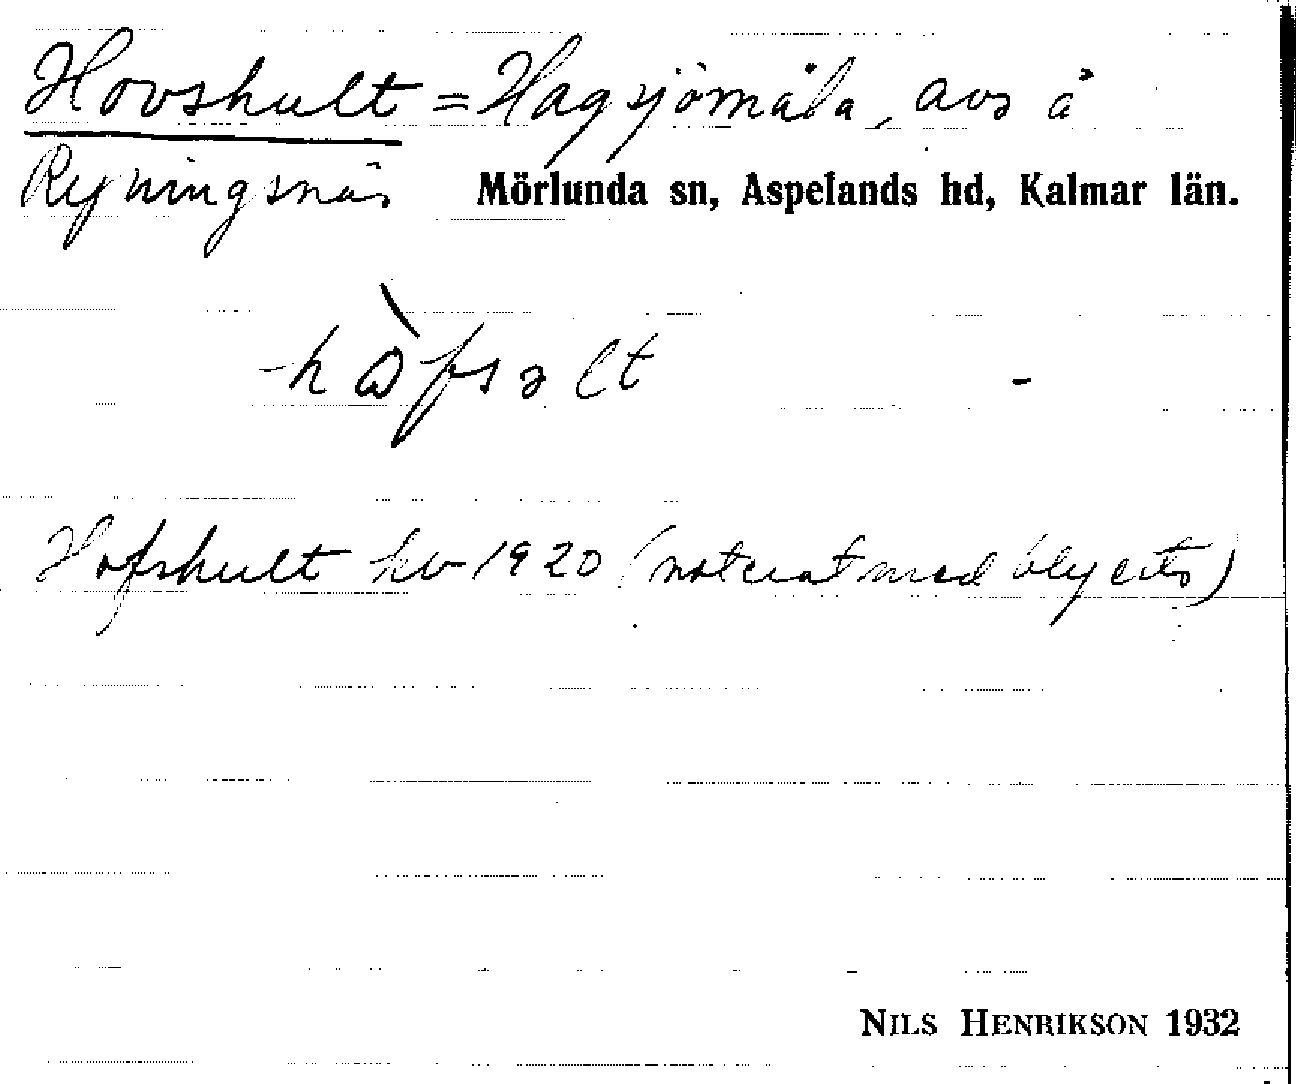 Hovshult = Hagsjömåla, avs å
Ryningsnäs Mörlunda sn, Aspelands hd, Kalmar län.
hòfsəlt -
Hofshult kv 1920 (noterat med blyerts)
NILS HENRIKSON 1932